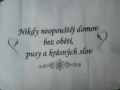 Nikdy neopouštěj domov
bez objetí,
pusy a krásných slov